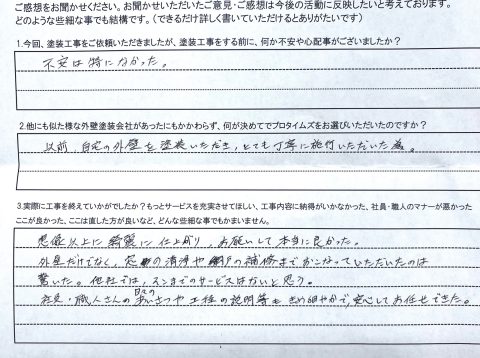 ご感想をお聞かせください。お聞かせいただいたご意見・ご感想は今後の活動に反映したいと考えております。
どのような細な事でも結構です。（できるだけ詳しく書いていただけるとありがたいです）
1.今回、塗装工事をご依頼いただきましたが、塗装工事をする前に、何か不安や心配事がございましたか？
不安は特になかった。
2.他にも似た様な外壁塗装会社があったにもかかわらず、何が決めてでプロタイムズをお選びいただいたのですか？
以前、自宅の外壁を塗装いただき、とても丁寧に施行いただいた為。
3.実際に工事を終えていかがでしたか？もっとサービスを充実させてほしい、工事内容に納得がいかなかった、社員・職人のマナーが悪かった
ここが良かった、ここは直した方が良いなど、どんな些細な事でもかまいません。
想像以上に綺麗に仕上がり、お願いして本当に良かった。
外壁だけでなく、窓の清浄や網戸の補修までおこなっていただいたのは
驚いた。他社では、ここまでのサービスはないと思う。
社員・職人さんの日々のあいさつや工程の説明等もきめ細やかで、安心してお任せできた。